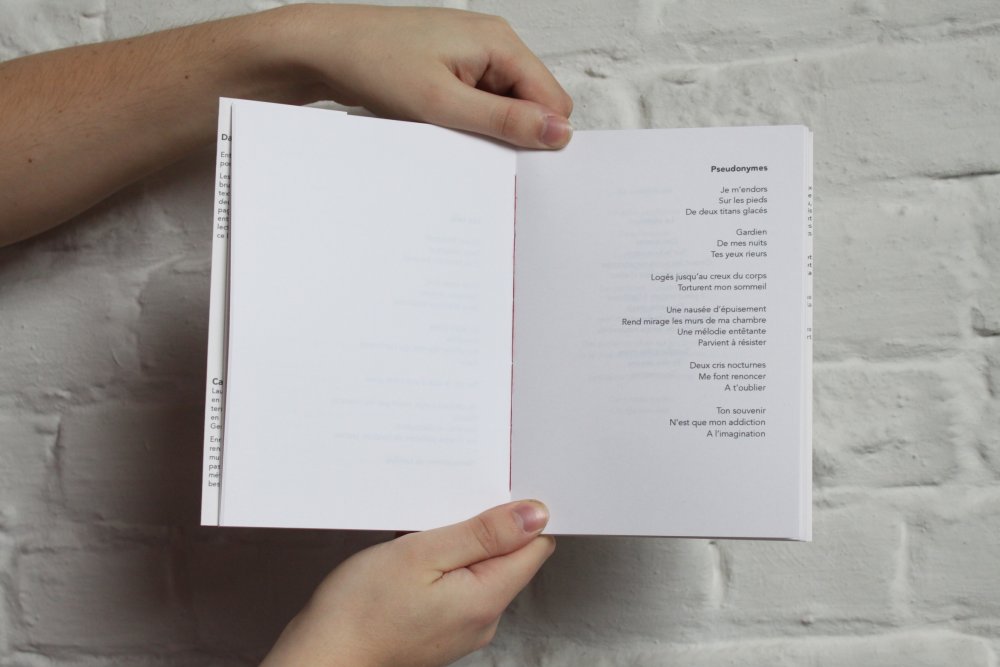 Da
Les
Ca
Lau
en
ten
en
Ge
En
ren
mu
pas
mé
bes
Pseudonymes
Je m'endors
Sur les pieds
De deux titans glacés
Gardien
De mes nuits
Tes yeux rieurs
Logés jusqu'au creux du corps
Torturent mon sommeil
Une nausée d'épuisement
Rend mirage les murs de ma chambre
Une mélodie entêtante
Parvient à résister
Deux cris nocturnes
Me font renoncer
A t'oublier
Ton souvenir
N'est que mon addiction
A l'imagination